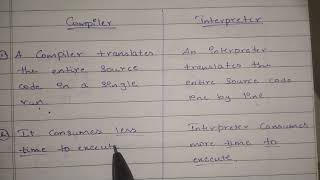 Compiler
Interpreter
1) A Compiler translates
the entire source
code in a single
run.
An interpreter
translates the
entire source code
line by line
2) It consumes less
time to execute
Interpreter consumes
more time to
execute